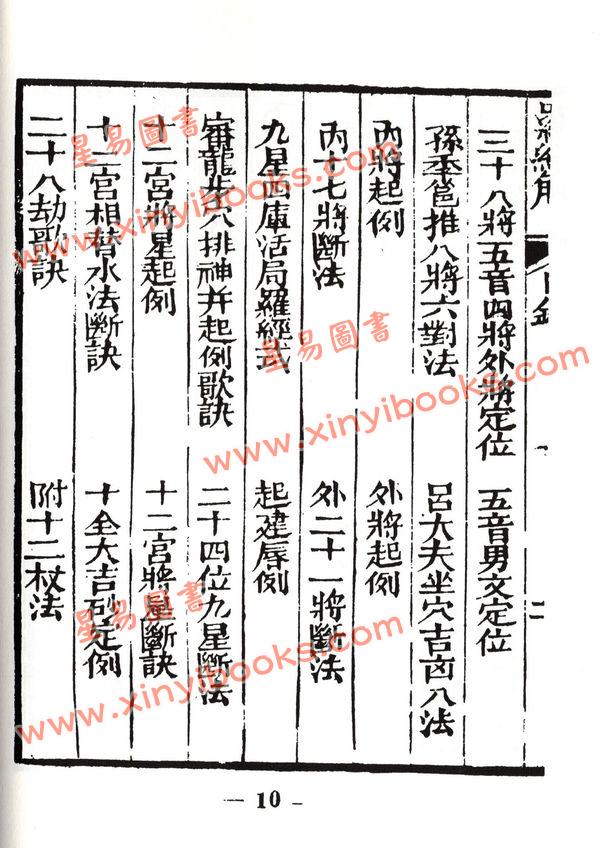 二
三十八將五音四將外將定位 五音男文定位
孫季邕推八將六對法 呂大夫坐穴吉凶八法
內將起例 外將起例
內十七將斷法 外二十一將斷法
九星四庫活局羅經式 起建辱例
審龍步穴排神并起例歌訣 二十四位九星斷法
十二宮將星起例 十二宮將星斷訣
十二宮相替水法斷訣 十全大吉列定例
二十八劫歌訣 附十二杖法
— 10 -
星易圖書
www.xinyibooks.com
星易圖書
www.xinyibooks.com
星易圖書
www.xinyibooks.com